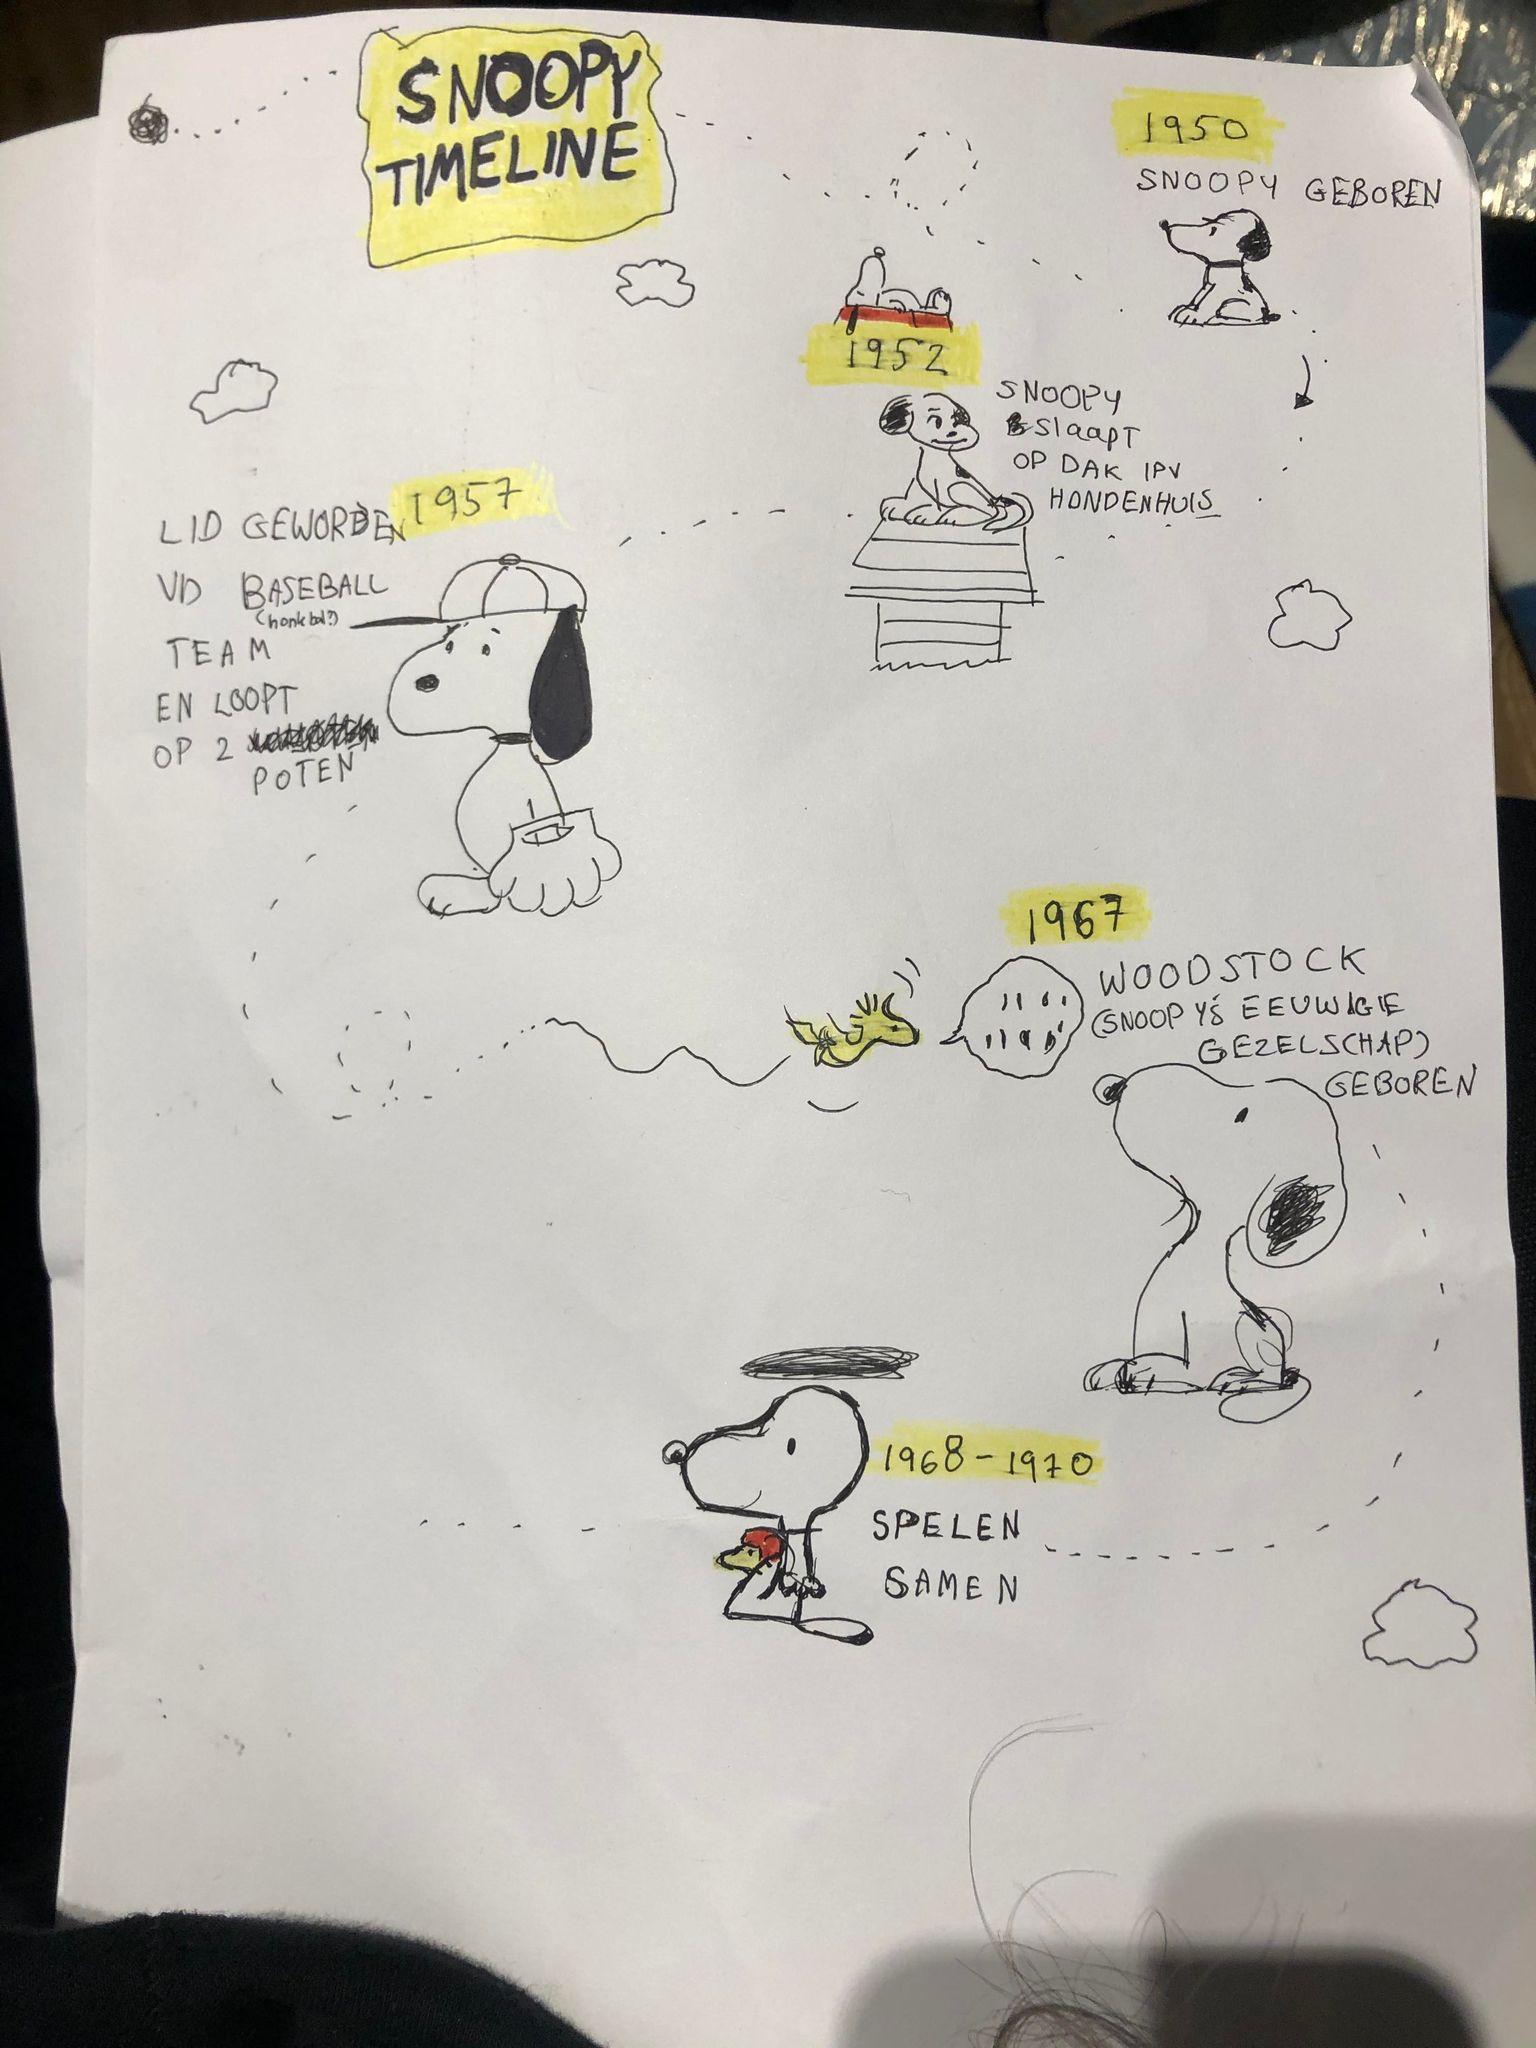 SNOOPY
TIMELINE
1950
SNOOPY GEBOREN
1952
SNOOPY
slaapt
OP DAK IPV
HONDENHUIS
1957
LID GEWORDEN
VD BASEBALL
(honkbal?)
TEAM
EN LOOPT
OP 2
POTEN
1967
WOODSTOCK
(SNOOPY'S EEUWIGE
GEZELSCHAP)
GEBOREN
1968-1970
SPELEN
SAMEN